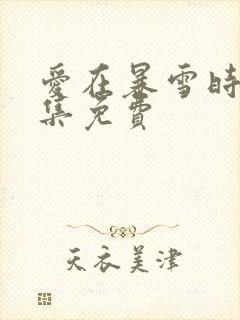 愛在暴雪時
集免費
天衣美津